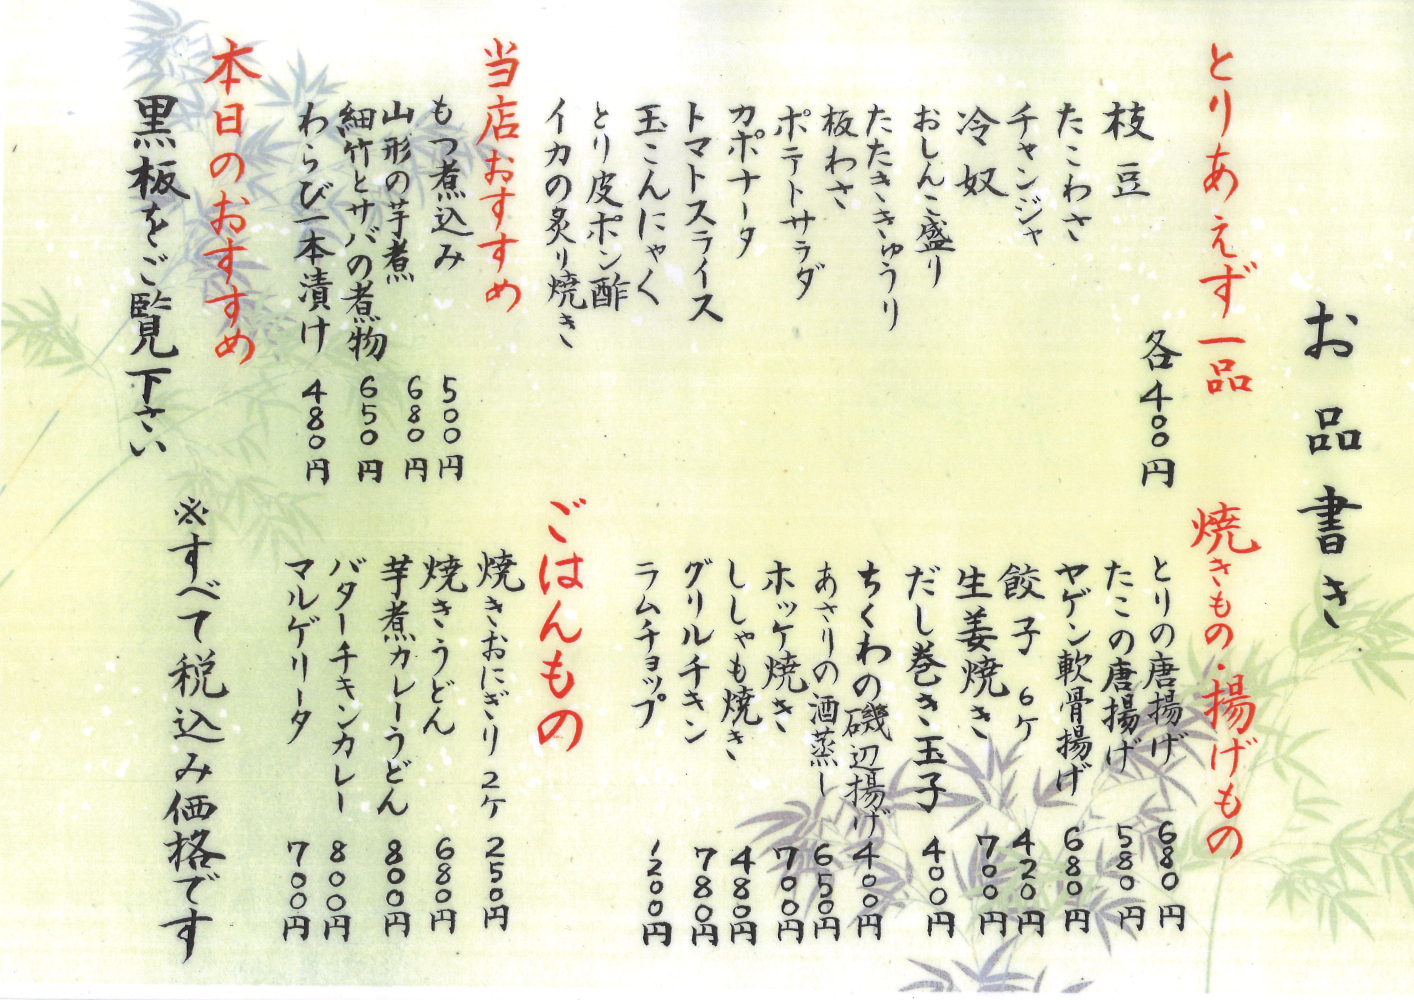 お品書き
とりあえず一品
各400円
枝豆
たこわさ
チャンジャ
冷奴
おしんこ盛り
たたききゅうり
板わさ
ポテトサラダ
カポナータ
トマトスライス
玉こんにゃく
とり皮ポン酢
イカの炙り焼き
当店おすすめ
もつ煮込み 500円
山形の芋煮 680円
細竹とサバの煮物 650円
わらび一本漬け 480円
本日のおすすめ
黒板をご覧下さい
焼きもの・揚げもの
とりの唐揚げ 680円
たこの唐揚げ 580円
ヤゲン軟骨揚げ 680円
餃子 6ケ 420円
生姜焼き 700円
だし巻き玉子 400円
ちくわの磯辺揚げ 400円
あさりの酒蒸し 650円
ホッケ焼き 700円
ししゃも焼き 480円
グリルチキン 780円
ラムチョップ 1200円
ごはんもの
焼きおにぎり 2ケ 250円
焼きうどん 680円
芋煮カレーうどん 800円
バターチキンカレー 800円
マルゲリータ 700円
※すべて税込み価格です